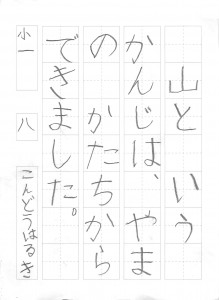 山という
かんじは、やま
のかたちから
できました。
小一 八 こんどうはるき